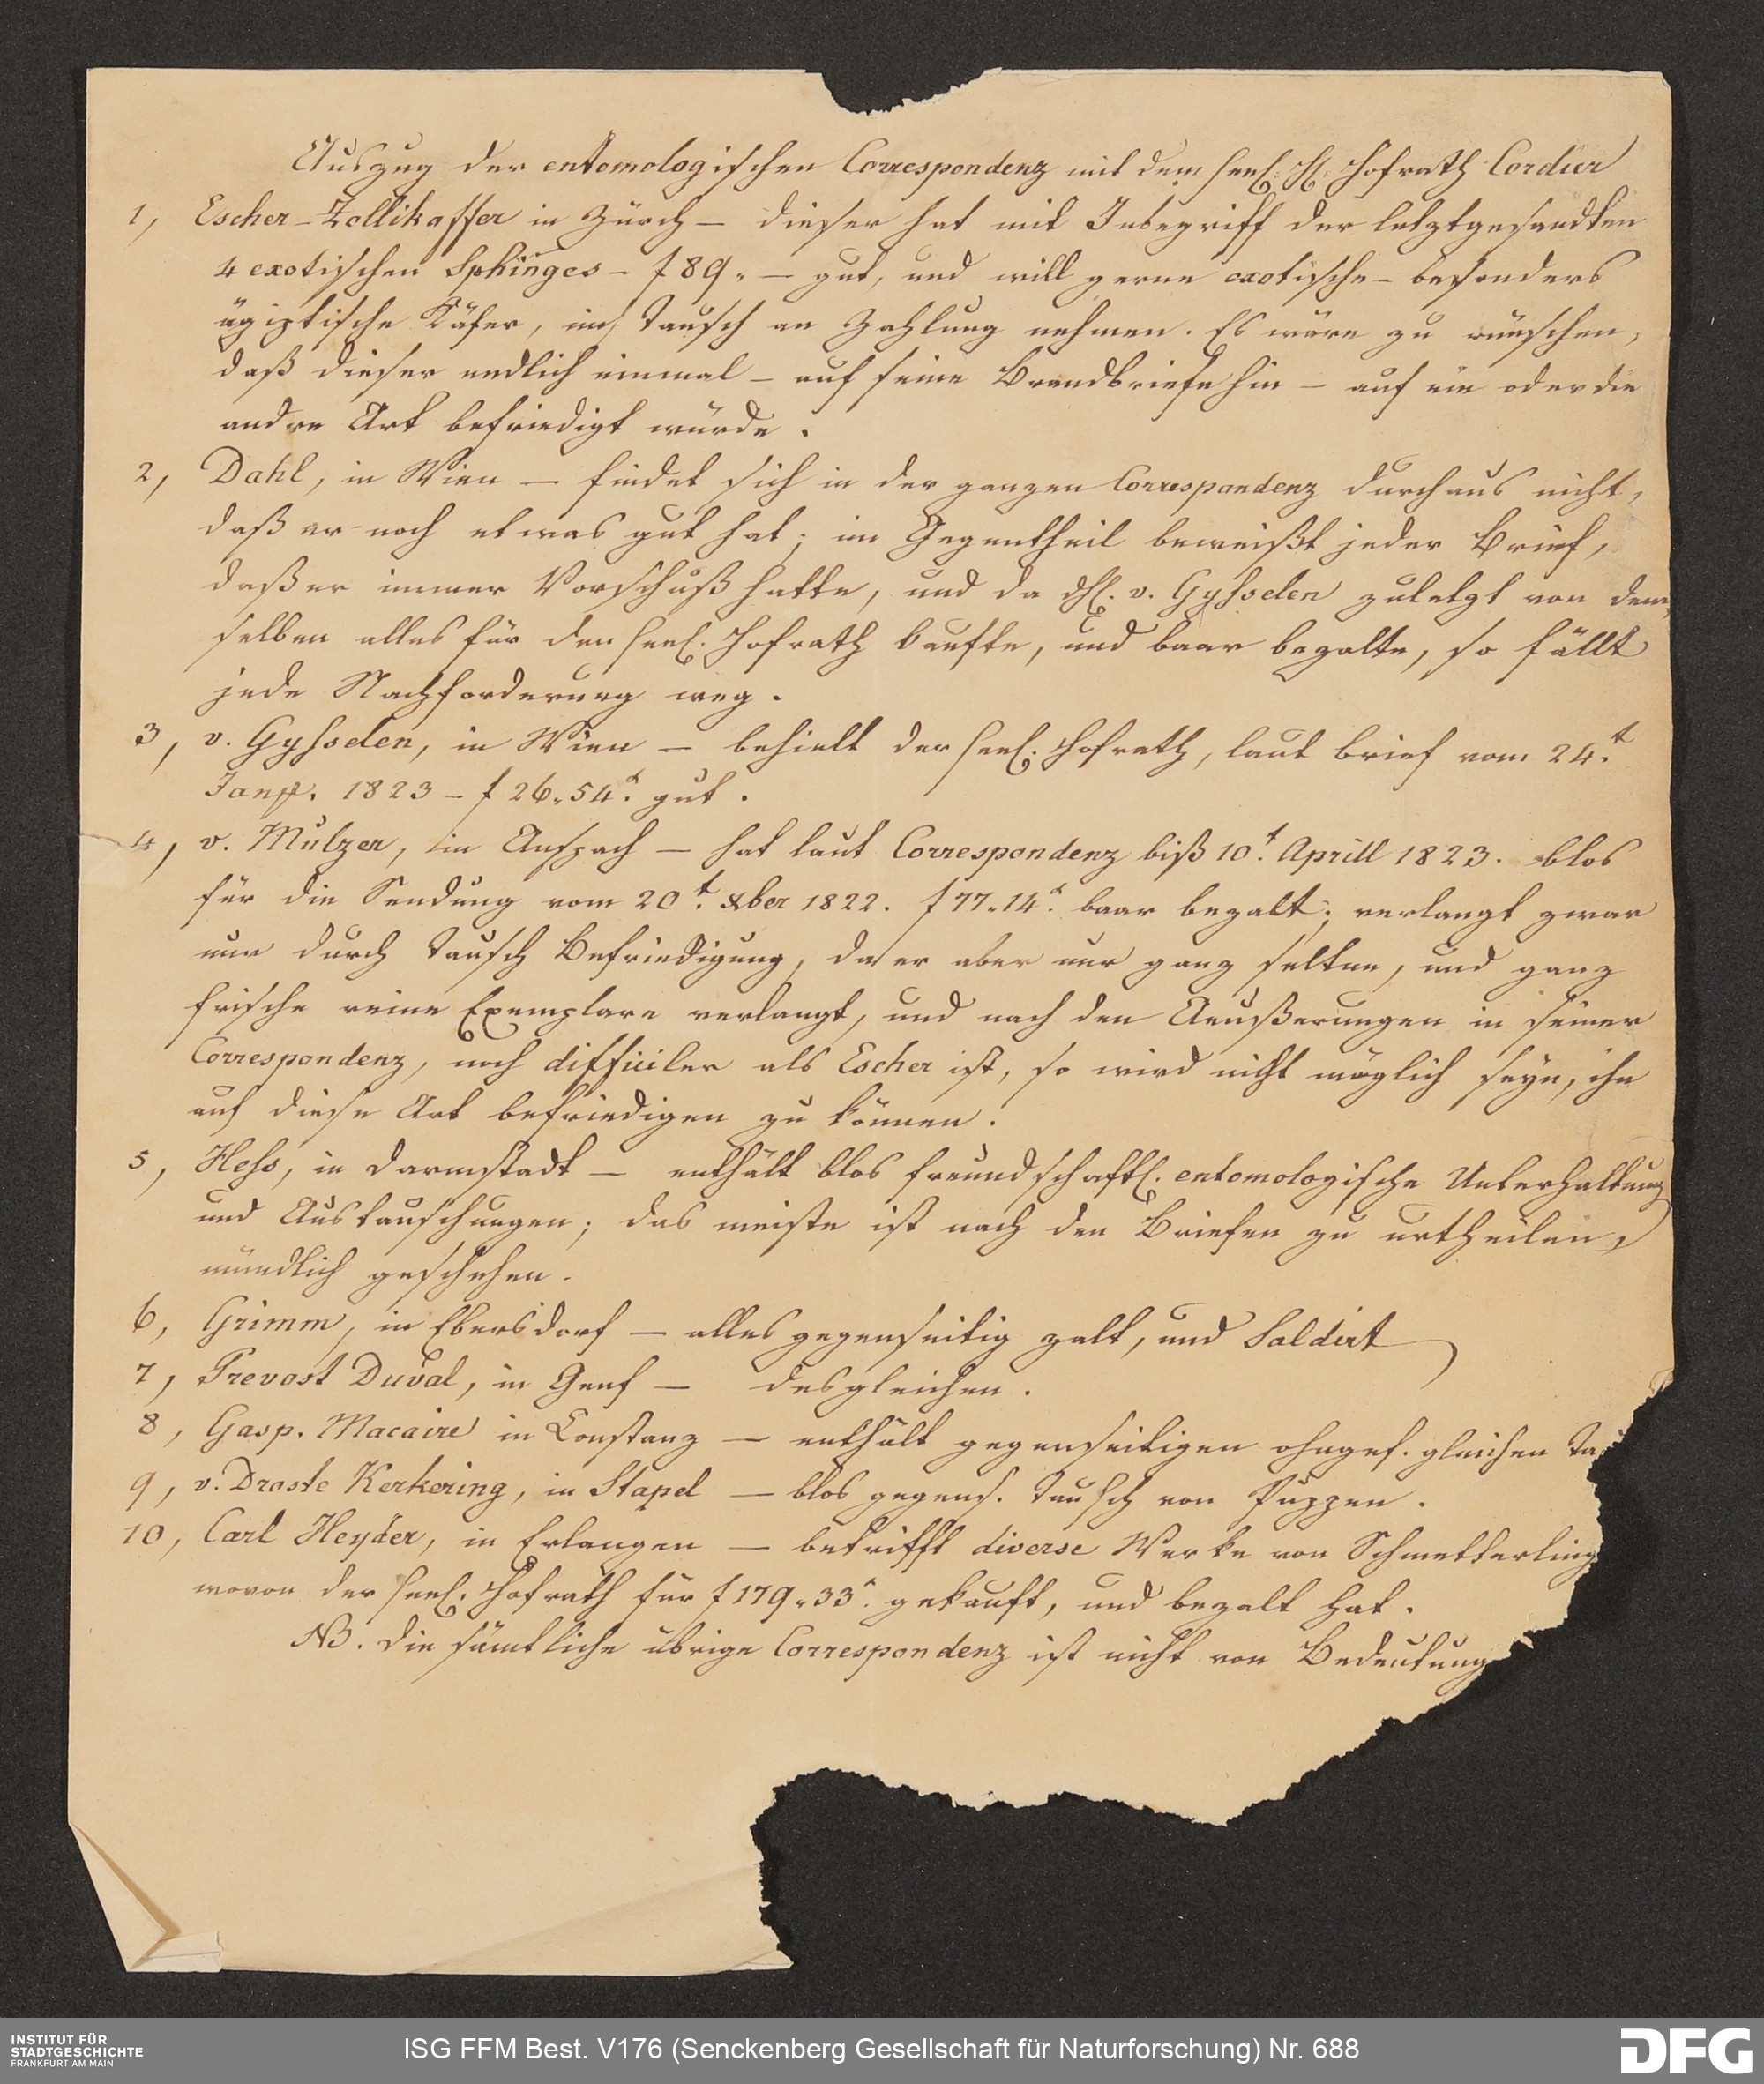 Auszug der entomologischen Correspondenz mit dem seel. H. Hofrath Cordier
1, Escher-Zollikoffer in Zürch – dieser hat mit Inbegriff der letztgesandten
4 exotischen Sphinges – f 89.– gut, und will gerne exotische – besonders
ägiptische Käfer, im Tausch an Zahlung nehmen. Es wäre zu wünschen,
daß dieser endlich einmal – auf seine Brandbriefe hin – auf ein oder die
andre Art befriedigt würde.
2, Dahl, in Wien – findet sich in der ganzen Correspondenz durchaus nicht,
daß er noch etwas gut hat; im Gegentheil beweißt jeder Brief,
daß er immer Vorschuß hatte, und da H. v. Gysselen zuletzt von dem,
selben alles für den seel. Hofrath kaufte, und baar bezalte, so fällt
jede Nachforderung weg.
3, v. Gysselen, in Wien – behielt der seel. Hofrath, laut Brief vom 24.t
1823 – f 26.54 x. gut.
4, v. Mulzer, in Anspach – hat laut Correspondenz biß 10.t Aprill 1823. blos
für die Sendung vom 20.t Xber 1822. f 77.14 x. baar bezalt; verlangt zwar
nur durch Tausch Befriedigung, da er aber nur ganz seltne, und ganz
frische reine Exemplare verlangt, und nach den Aeußerungen in seiner
Correspondenz, noch difficiler als Escher ist, so wird nicht möglich seyn, ihn
auf diese Art befriedigen zu können.
5, Hess, in Darmstadt – enthält blos freundschaftl. entomologische Unterhaltung
und Austauschungen; das meiste ist nach den Briefen zu urtheilen,
mündlich geschehen.
6, Grimm, in Ebersdorf – alles gegenseitig zalt, und Saldirt
7, Prevost Duval, in Genf – desgleichen.
8, Gasp. Macaire in Constanz – enthält gegenseitigen ohngef. gleichen
9, v. Droste Kerkering, in Stapel – blos gegens. Tausch von Puppen.
10, Carl Heyder, in Erlangen – betrifft diverse Werke von Schmetterling
wovon der seel. Hofrath für f 179.33 x. gekauft, und bezalt hat.
NB. die sämtliche übrige Correspondenz ist nicht von Bedeutung
INSTITUT FÜR
STADTGESCHICHTE
FRANKFURT AM MAIN
ISG FFM Best. V176 (Senckenberg Gesellschaft für Naturforschung) Nr. 688
DFG